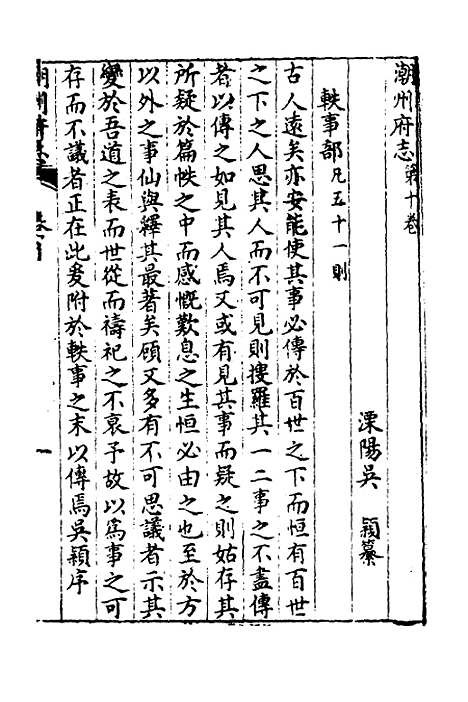 潮州府志第十卷
溧陽吳 穎纂
軼事部凡五十一則
古人遠矣亦安能使其事必傳於百世之下而恒有百世
之下之人思其人而不可見則搜羅其一二事之不盡傳
者以傳之如見其人焉又或有見其事而疑之則姑存其
所疑於篇帙之中而感慨歎息之生恒必由之也至於方
以外之事仙與釋其最著矣頋又多有不可思議者示其
變於吾道之表而世從而禱祀之不衰予故以為事之可
存而不議者正在此爰附於軼事之末以傳焉吳穎序
一